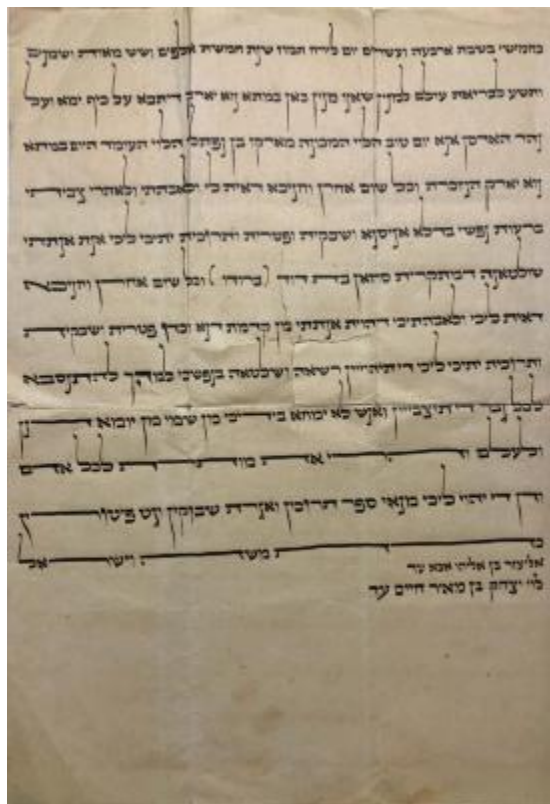 בחמישי בשבת ארבעה ועשרים יום לירח תמוז שנת חמשת אלפים ושש מאות ושמנים
ותשע לבריאת עולם למנין שאנו מנין כאן במתא נוא יארק דיתבא על כיף ימא ועל
נהר האדסן אנא יום טוב הלוי המכונה מארקו בן נפתלי הלוי העומד היום במתא
נוא יארק הנזכרת וכל שום אחרן וחניכא דאית לי ולאבהתי ולאתרי צביתי
ברעות נפשי בדלא אניסנא ושבקית ופטרית ותרוכית יתיכי ליכי אנת אנתתי
שולטאנה דמתקרית סוזאן בת דוד (ברודו) וכל שום אחרן וחניכא
דאית ליכי ולאבהתיכי דהוית אנתתי מן קדמת דנא וכדן פטרית ושבקית
ותרוכית יתיכי ליכי דיתיהוייין רשאה ושלטאה בנפשיכי למהך להתנסבא
לכל גבר די תיצבייין ואנש לא ימחא בידיכי מן שמי מן יומא דנן
ולעלם והרי את מותרת לכל אדם
ודן די יהוי ליכי מנאי ספר תרוכין ואגרת שבוקין וגט פיטורין
כדת משה וישראל
אליעזר בן אליהו אבא עד
לוי יצחק בן מאיר חיים עד